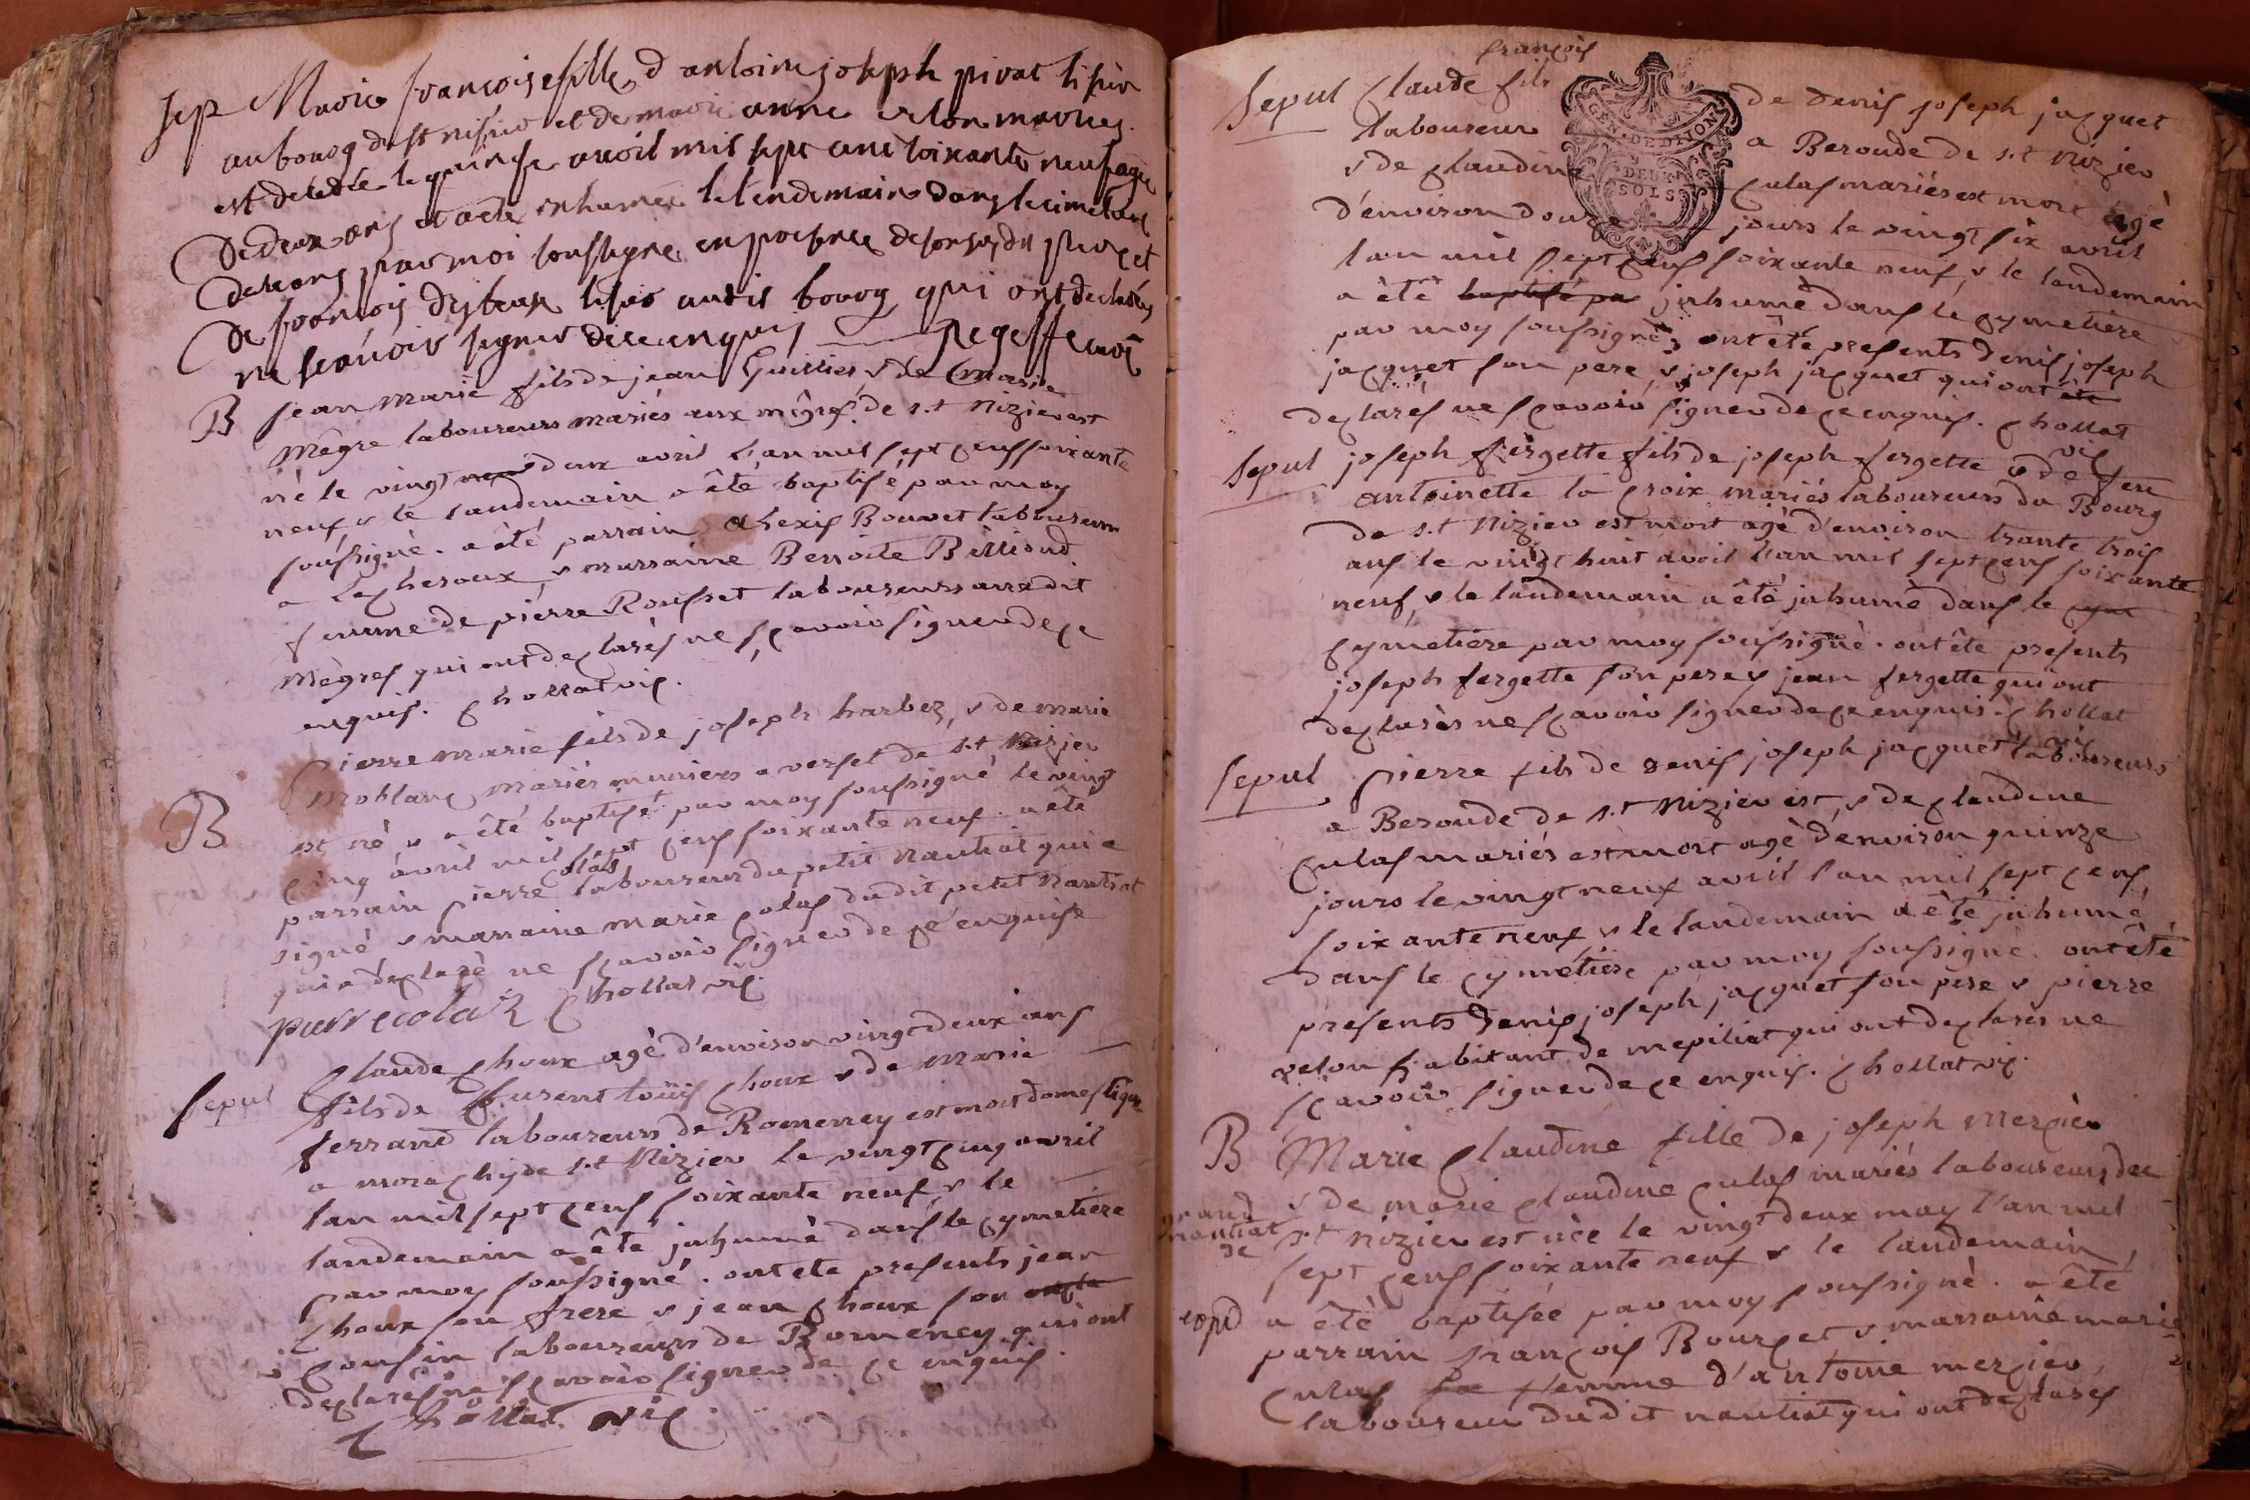 sep Marie françoise fille d antoine joseph pivat tisier
au bourg de st nisier et de marie anne velon maries
est décédée le quinse avril mil sept cent soixante neuf agée
de deux ans et a été inhumée le lendemain dans le cimetiere
par moi soussigné en presence de son dit pere et
de françois tisier audit bourg qui ont declarés
ne scavoir signer de ce enquis
B jean marie fils de jean Guillier & de marie
mègre laboureurs mariés aux mègres de s.t Nizier est
né le vingt deux avril l'an mil sept cens soixante
neuf, & le landemain a été baptisé par moy
soussigné. a été parrain Alexis Bouvet laboureur
a & marraine Benoite Billioud
femme de pierre Rousset laboureurs auxdit
mègres qui ont declarés ne sçavoir signer de ce
enquis. Chollat vic.
B pierre marie fils de joseph harbez, & de marie
moblanc mariés muniers a versel de s.t Nizier
est né & a été baptisé par moy soussigné le vingt
cinq avril mil sept cens soixante neuf. a été
parrain pierre colas laboureur du petit Nantiat qui a
signé & marraine marie Colas dudit petit Nantiat
qui a declaré ne sçavoir signer de ce enquise
pierre colas Chollat vic.
sepul Claude Choux agé d'environ vingt deux ans
fils de louis Choux & de marie
ferrand laboureurs de Romeney est mort domestique
a de s.t Nizier le vingt cinq avril
l'an mil sept cens soixante neuf & le
landemain a été inhumé dans le cymetiere
par moy soussigné. ont été presents jean
Choux son frere & jean Choux son
cousin laboureurs de Romeney qui ont
declarés ne sçavoir signer de ce enquis.
Chollat vic
françois
sepul Claude fils de denis joseph jacquet
laboureur a Beroude de s.t Nizier
& de claudine Culas mariés est mort agé
d'environ douze jours le vingt six avril
l'an mil sept cens soixante neuf, & le landemain
a été baptisé par inhumé dans le cymetiere
par moy soussigné, ont été presents denis joseph
jacquet son pere, & joseph jacquet qui ont été
declarés ne sçavoir signer de ce enquis. Chollat
vic
sepul joseph fergette fils de joseph fergette & de feu
antoinette la Croix mariés laboureurs du Bourg
de s.t Nizier est mort agé d'environ trante trois
ans le vingt huit avril l'an mil sept cens soixante
neuf, & le landemain a été inhumé dans le
cymetiere par moy soussigné. ont été presents
joseph fergette son pere & jean fergette qui ont
declarés ne sçavoir signer de ce enquis. Chollat
vic
sepul pierre fils de denis joseph jacquet laboureurs
a Beroude de s.t Nizier est, & de claudine
Culas mariés est mort agé d'environ quinze
jours le vingt neuf avril l'an mil sept cens
soixante neuf & le landemain a été inhumé
dans le cymetiere par moy soussigné. ont été
presents denis joseph jacquet son pere & pierre
velon habitant de mepiliat qui ont declarés ne
sçavoir signer de ce enquis. Chollat vic.
B Marie Claudine fille de joseph Mercier
& de marie claudine Culas mariés laboureurs du
grand nantiat de s.t Nizier est née le vingt deux may l'an mil
sept cens soixante neuf & le landemain,
a été baptisée par moy soussigné. a été
parrain françois Bourcet & marraine marie
Culas femme d'antoine mercier,
laboureur dudit nantiat qui ont declarés
GEN. DE DIJON
DEUX
SOLS